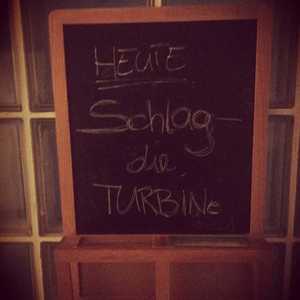 HEUTE
Schlag-
die
TURBINe